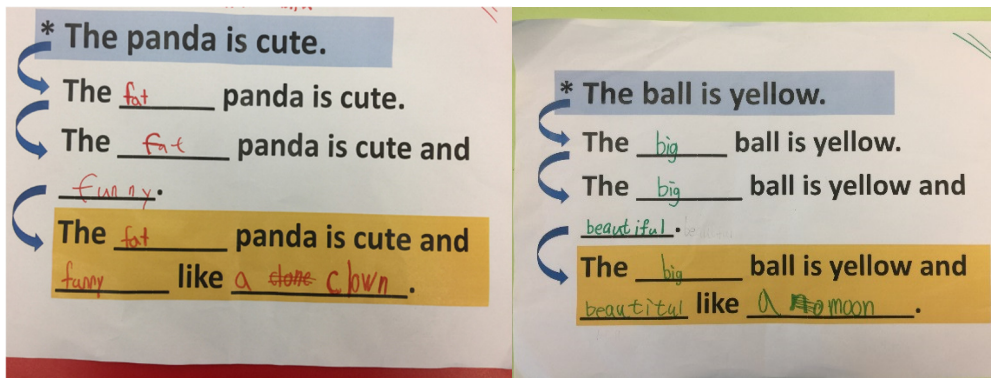 * The panda is cute.
The fat panda is cute.
The fat panda is cute and
funny.
The fat panda is cute and
funny like a clone clown.
* The ball is yellow.
The big ball is yellow.
The big ball is yellow and
beautiful.
The big ball is yellow and
beautitul like a moon.